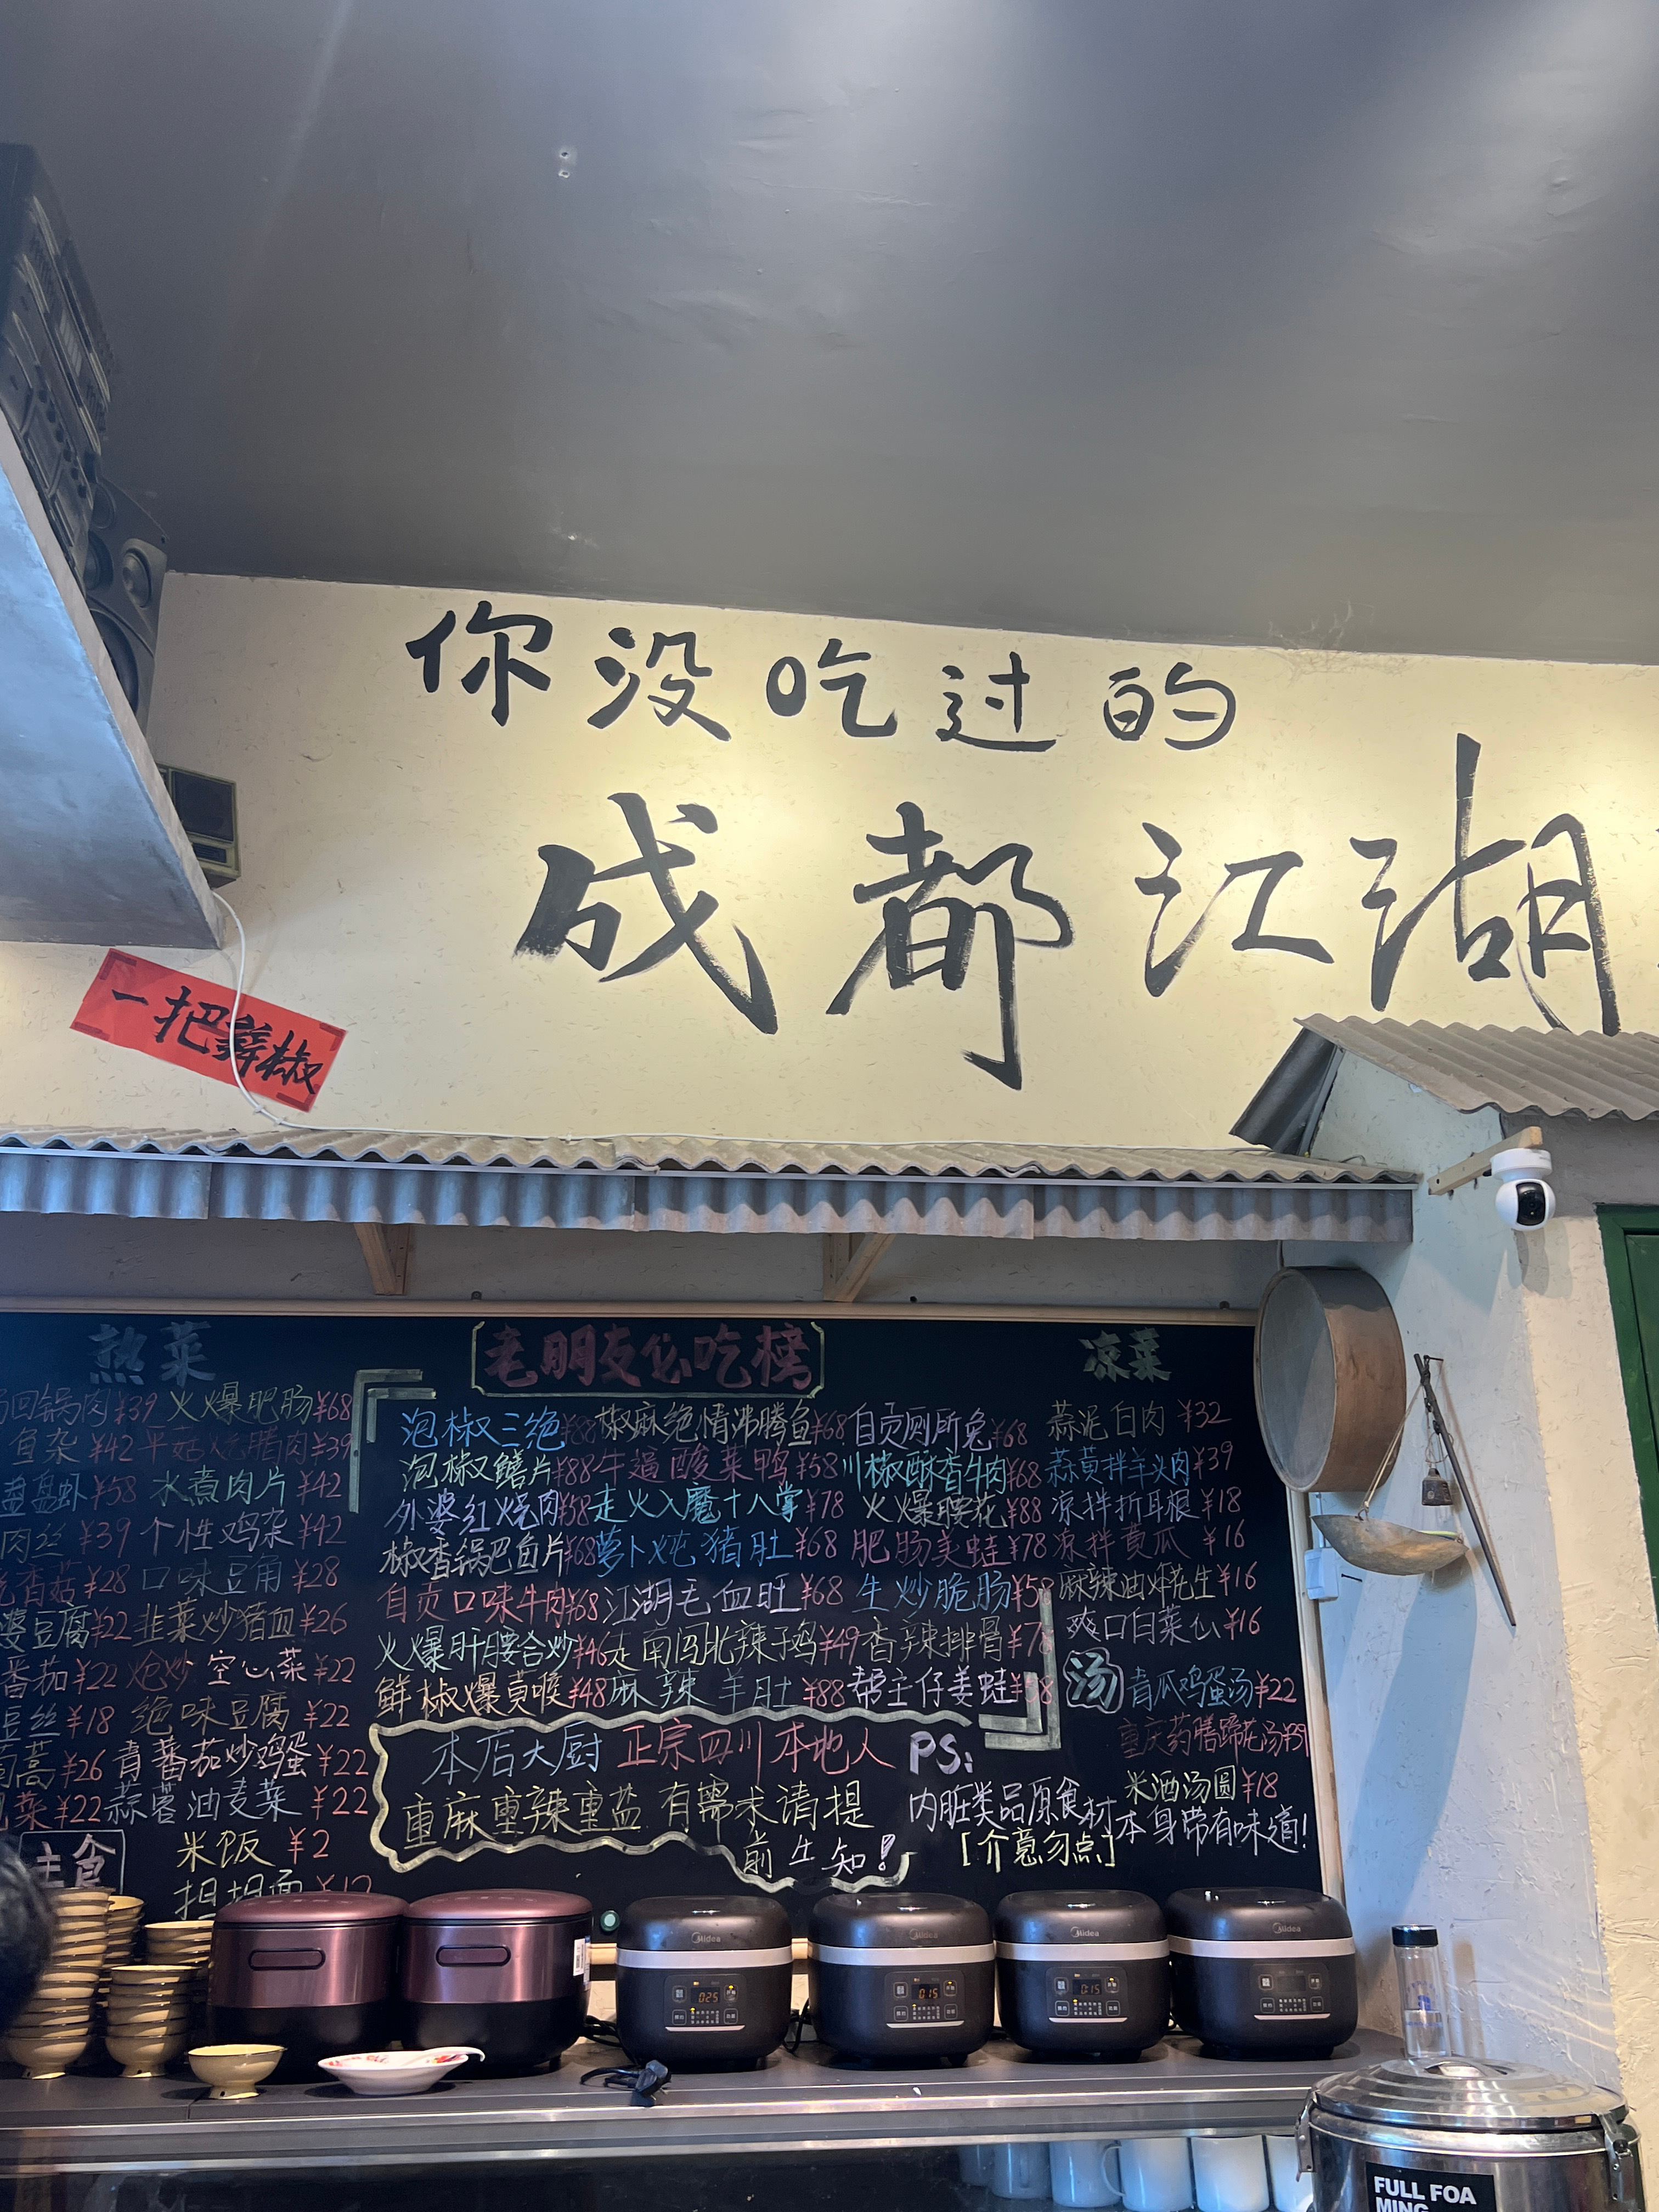 你没吃过的
成都江湖
一把辣椒
热菜
回锅肉¥39 火爆肥肠¥68
鱼杂¥42 平菇炒腊肉¥39
盘盘虾¥58 水煮肉片¥42
肉丝¥39 个性鸡杂¥42
香菇¥28 口味豆角¥28
婆豆腐¥22 韭菜炒猪血¥26
番茄¥22 炝炒空心菜¥22
豆丝¥18 绝味豆腐¥22
蒿¥26 青番茄炒鸡蛋¥22
菜¥22 蒜蓉油麦菜¥22
主食
米饭¥2
担担面¥12
老朋友必吃榜
泡椒三绝¥88 椒麻绝情沸腾鱼¥68 自贡厕所兔¥68
泡椒鳝片¥88 牛逼酸菜鸭¥58 川椒酥香牛肉¥68
外婆红烧肉¥58 走火入魔十八掌¥78 火爆腰花¥88
椒香锅巴鱼片¥68 萝卜炖猪肚¥68 肥肠美蛙¥78
自贡口味牛肉¥68 江湖毛血旺¥68 生炒脆肠¥58
火爆肝腰合炒¥46 走南闯北辣子鸡¥49 香辣排骨¥78
鲜椒爆黄喉¥48 麻辣羊肚¥88 帮主仔姜蛙¥58
本店大厨正宗四川本地人
重麻重辣重盐 有需求请提
前告知!
PS:
内脏类品原食材本身带有味道!
[介意勿点]
凉菜
蒜泥白肉¥32
蒜黄拌羊火肉¥39
凉拌折耳根¥18
凉拌黄瓜¥16
麻辣油炸花生¥16
爽口白菜心¥16
汤
青瓜鸡蛋汤¥22
重庆药膳蹄花汤¥39
米酒汤圆¥18
Midea
025
Midea
0:15
Midea
0:15
Midea
FULL FOA
MING